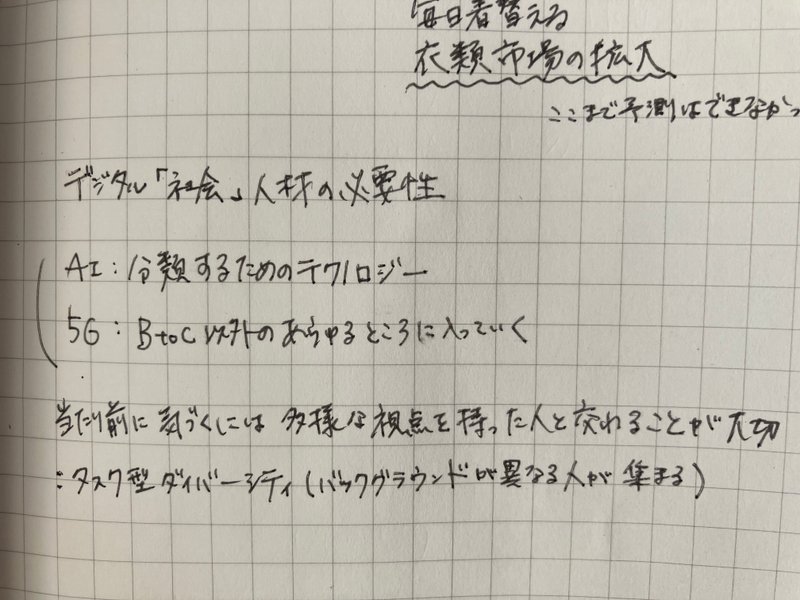 毎日着替える
衣類市場の拡大
ここまで予測はできなかっ
デジタル「社会」人材の必要性
AI:分類するためのテクノロジー
5G:BtoC以外のあらゆるところに入っていく
当たり前に気づくには多様な視点を持った人と交わることが大切
:タスク型ダイバーシティ(バックグラウンドが異なる人が集まる)